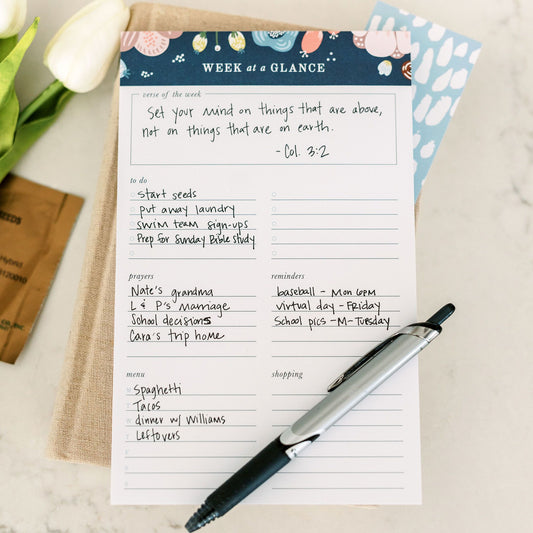 WEEK at a GLANCE
verse of the week
Set your mind on things that are above,
not on things that are on earth.
- Col. 3:2
to do
start seeds
put away laundry
swim team sign-ups
Prep for Sunday Bible study
prayers
Nate's grandma
L & P's marriage
School decisions
Cara's trip home
reminders
baseball - Mon 6PM
virtual day - Friday
School pics - M - Tuesday
menu
Spaghetti
Tacos
dinner w/ Williams
Leftovers
shopping
SEEDS
Hybrid